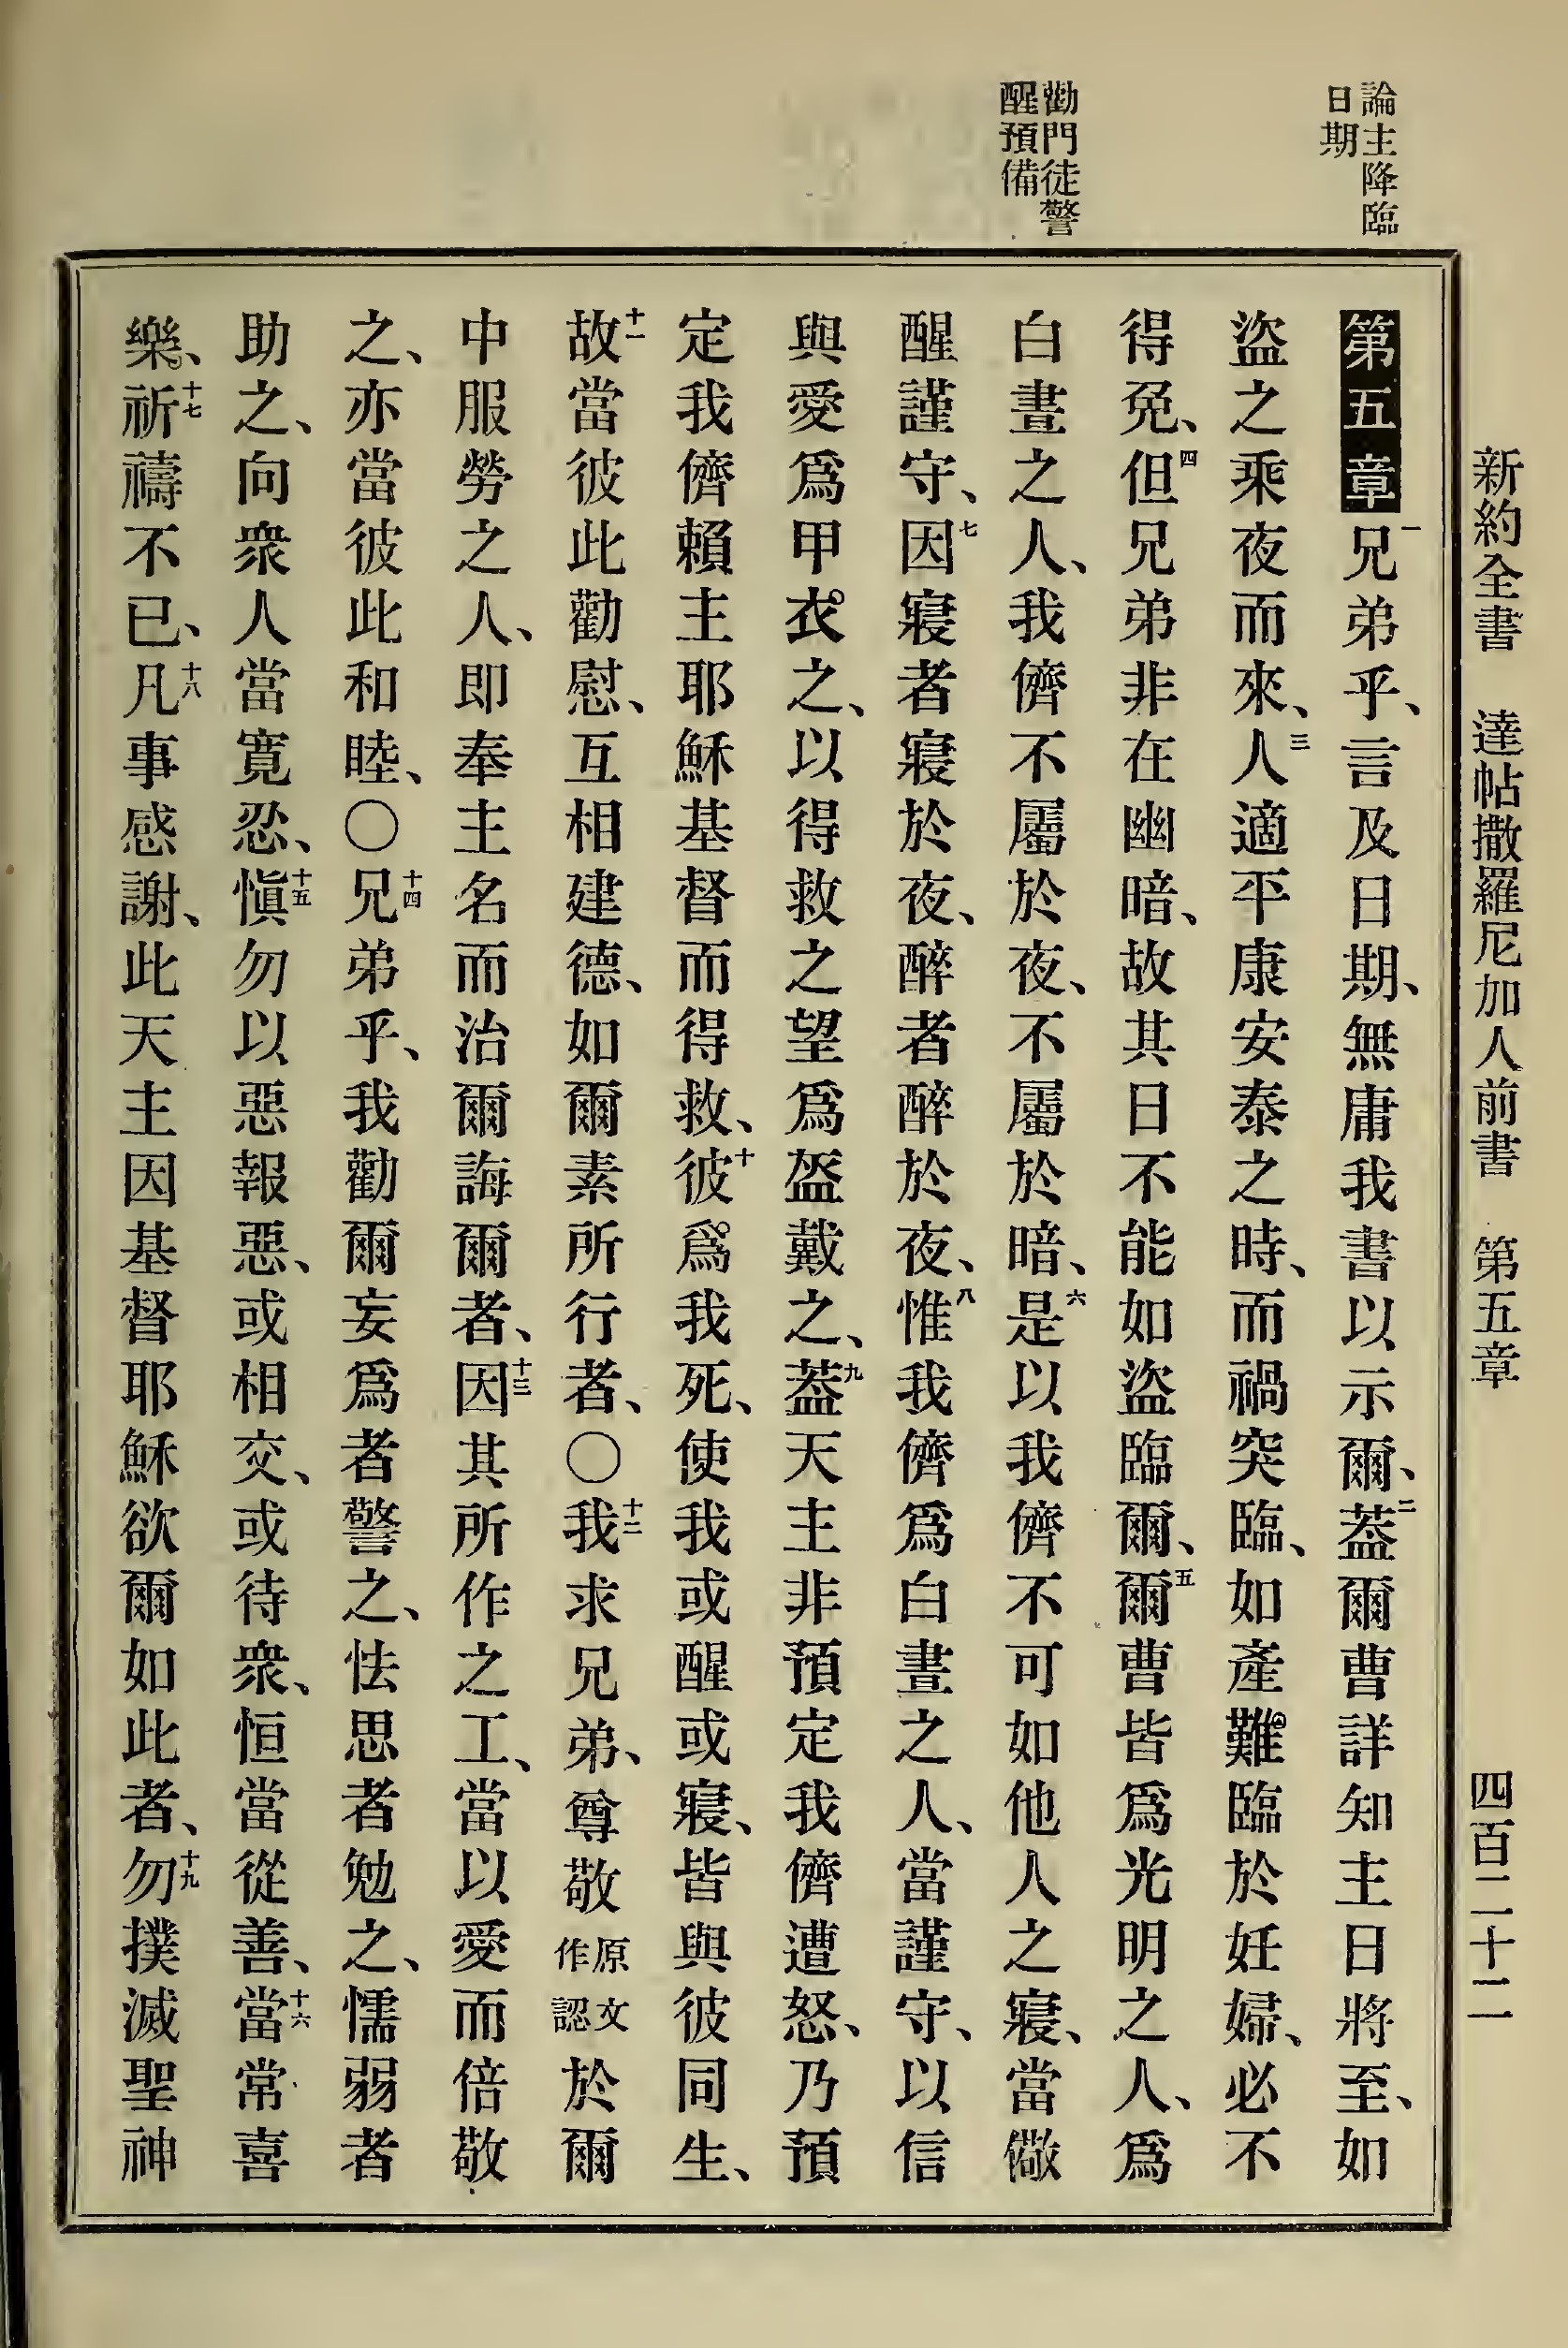 新約全書　達帖撒羅尼加人前書　第五章　四百二十二
論主降臨
日期
勸門徒警
醒預備
第五章一兄弟乎、言及日期、無庸我書以示爾、二蓋爾曹詳知主日將至、如
盜之乘夜而來、三人適平康安泰之時、而禍突臨、如產難臨於妊婦、必不
得免、四但兄弟非在幽暗、故其日不能如盜臨爾、五爾曹皆爲光明之人、爲
白晝之人、我儕不屬於夜、不屬於暗、六是以我儕不可如他人之寢、當儆
醒謹守、七因寢者寢於夜、醉者醉於夜、八惟我儕爲白晝之人、當謹守、以信
與愛爲甲衣之、以得救之望爲盔戴之、九蓋天主非預定我儕遭怒、乃預
定我儕賴主耶穌基督而得救、十彼爲我死、使我或醒或寢、皆與彼同生、
十一故當彼此勸慰、互相建德、如爾素所行者、〇十二我求兄弟、尊敬原文作認於爾
中服勞之人、即奉主名而治爾誨爾者、十三因其所作之工、當以愛而倍敬
之、亦當彼此和睦、〇十四兄弟乎、我勸爾妄爲者警之、怯思者勉之、懦弱者
助之、向衆人當寬忍、十五愼勿以惡報惡、或相交、或待衆、恒當從善、十六當常喜
樂、十七祈禱不已、十八凡事感謝、此天主因基督耶穌欲爾如此者、十九勿撲滅聖神